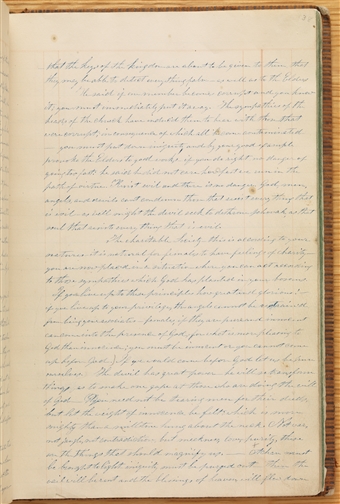 that the keys of the kingdom are about to be given to them that
they may be able to detect every thing false—as well as to the Elders
He said if one member become corrupt and you know
it; you must immediately put it away. The sympathies of the
heads of the church have induced them to bear with those that
were corrupt; in consequence of which all become contaminated—
you must put down iniquity and by your good example
provoke the Elders to good works—if you do right no danger of
going too fast; he said he did not care how fast we run in the
path of virtue. Resist evil and there is no danger. God, men,
angels and devils can't condemn those that resist every thing that
is evil—as well might the devil seek to dethrone Jehovah, as that
soul that resists every thing that is evil.
The charitable Society—this is according to your
natures—it is natural for females to have feelings of charity
you are now placed in a situation where you can act according
to those sympathies which God has planted in your bosoms.
If you live up to these principles how great and glorious!
if you live up to your privilege, the angels cannot be restrained
from being your associates—females, if they are pure and innocent
can come into the presence of God; for what is more pleasing to
God than innocence; you must be innocent or you cannot come
up before God. If we would come before God let us be pure
ourselves. The devil has great power—he will so transform
things as to make one gape at those who are doing the will
of God— You need not be tearing men for their deeds
but let the weight of innocence be felt which is more
mighty than a millstone hung about the neck. Not war,
not jangle, not contradiction, but meekness, love, purity, these
are the things that should magnify us.— Achan must
be brought to light—iniquity must be purged out—Then the
vail will be rent and the blessings of heaven will flow down